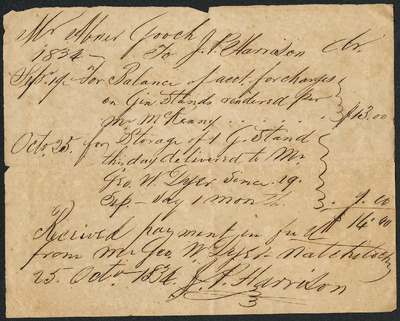 Mr Abner Gooch
1834 — To J. P. Harrison Dr.
Sept. 19 — For Balance of acct. for charges
on Gin Stands rendered per
Mr McKenny . . . . . $13.00
Octo 25. for Storage of 1 G. Stand
this day delivered to Mr
Geo. W. Dyer Since 19.
Sep — say 1 month. . 1.00
$ 14.00
Received payment in full
from Mr Geo. W. Dyer
25. Octo 1834. J. P. Harrison